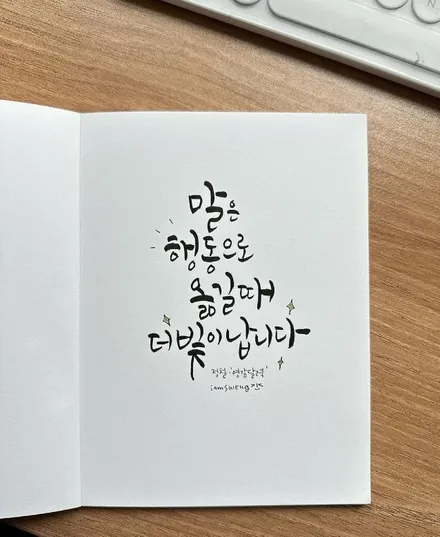 말은
행동으로
옮길때
더 빛이 납니다
정철 '영감달력'
iamsweng